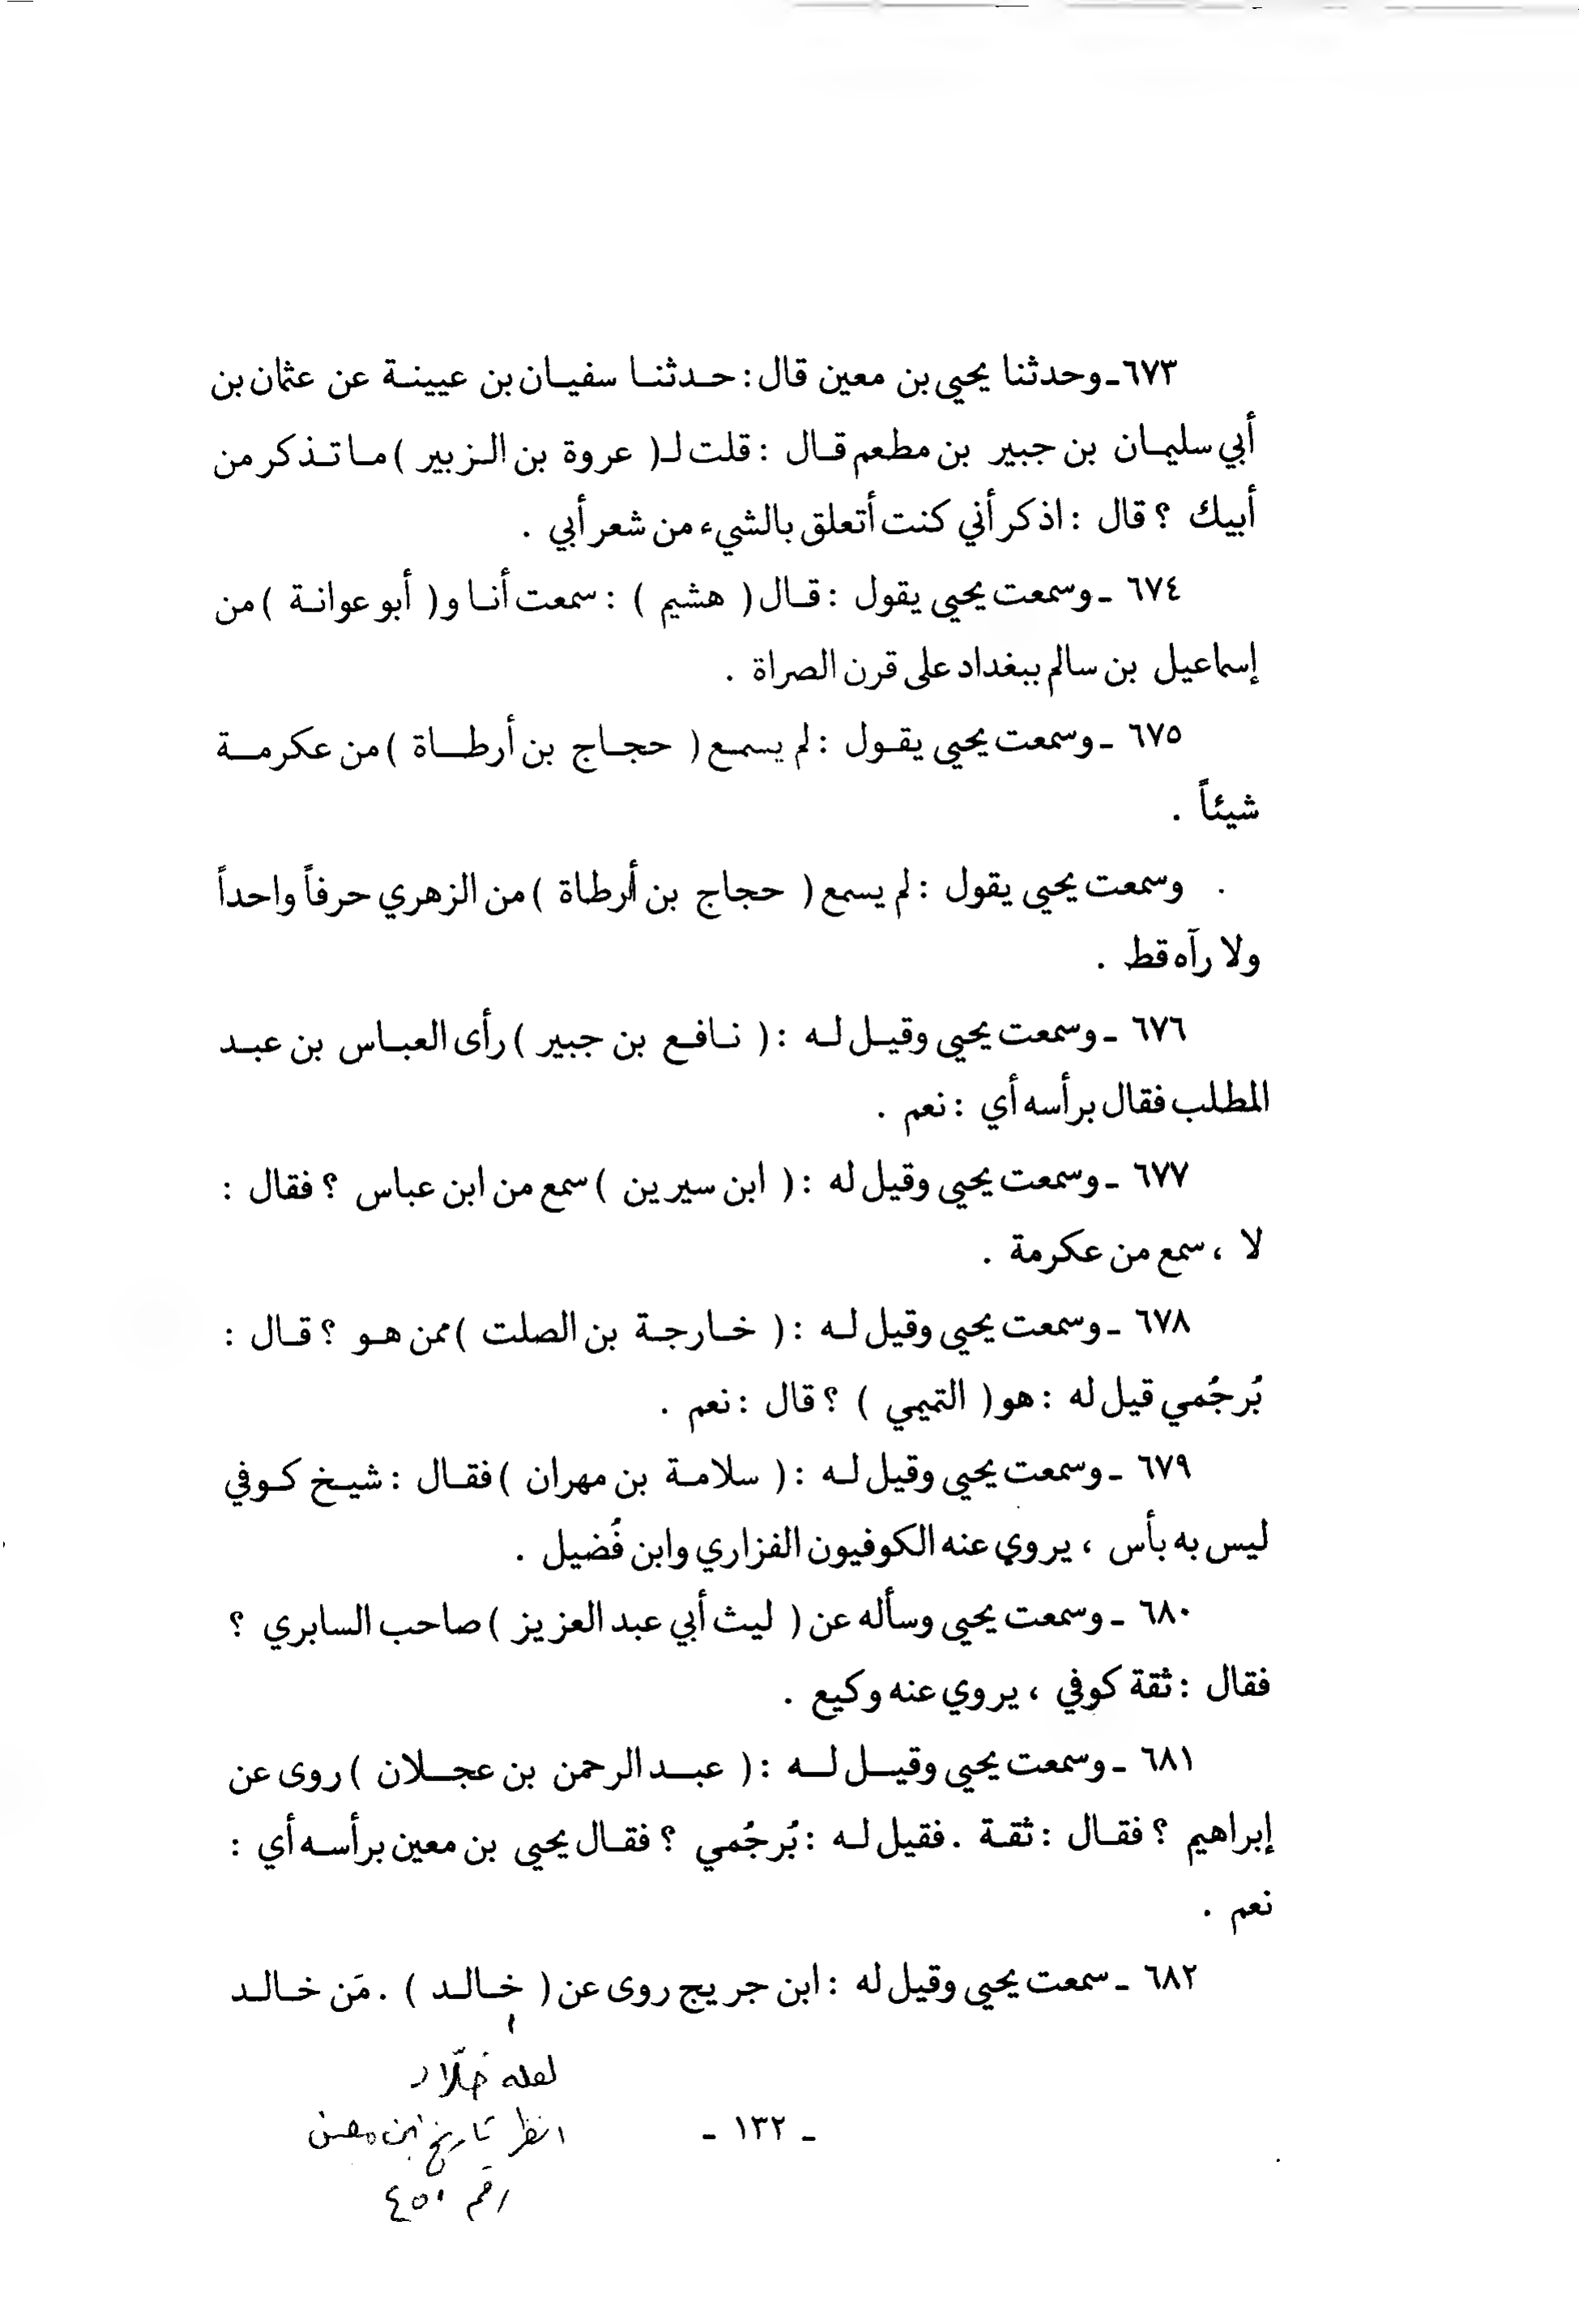 ٦٧٣ـ وحدثنا يحيى بن معين قال : حـدثنـا سفيـان بن عيينـة عن عثمان بن
أبي سليمـان بن جبير بن مطعم قـال : قلت لـ( عروة بن الـزبير ) مـا تـذكر من
أبيك ؟ قال : اذكر أني كنت أتعلق بالشيء من شعر أبي .
٦٧٤ ـ وسمعت يحيى يقول : قـال ( هشيم ) : سمعت أنـا و( أبو عوانـة ) من
إسماعيل بن سالم ببغداد على قرن الصراة .
٦٧٥ ـ وسمعت يحيى يقـول : لم يسمـع ( حجـاج بن أرطـاة ) من عكرمـة
شيئاً .
. وسمعت يحيى يقول : لم يسمع ( حجاج بن أرطاة ) من الزهري حرفاً واحداً
ولا رآه قط .
٦٧٦ ـ وسمعت يحيى وقيـل لـه : ( نـافـع بن جبير ) رأى العبـاس بن عبـد
المطلب فقال برأسه أي : نعم .
٦٧٧ ـ وسمعت يحيى وقيل له : ( ابن سيرين ) سمع من ابن عباس ؟ فقال :
لا ، سمع من عكرمة .
٦٧٨ ـ وسمعت يحيى وقيل لـه : ( خـارجـة بن الصلت ) ممن هـو ؟ قـال :
بُرجُمي قيل له : هو ( التميمي ) ؟ قال : نعم .
٦٧٩ ـ وسمعت يحيى وقيل لـه : ( سلامـة بن مهران ) فقـال : شيـخ كـوفي
ليس به بأس ، يروي عنه الكوفيون الفزاري وابن فُضيل .
٦٨٠ ـ وسمعت يحيى وسأله عن ( ليث أبي عبد العزيز ) صاحب السابري ؟
فقال : ثقة كوفي ، يروي عنه وكيع .
٦٨١ ـ وسمعت يحيى وقيـل لـه : ( عبـد الرحمن بن عجـلان ) روى عن
إبراهيم ؟ فقـال : ثقـة . فقيل لـه : بُرجُمي ؟ فقـال يحيى بن معين برأسـه أي :
نعم .
٦٨٢ ـ سمعت يحيى وقيل له : ابن جريج روى عن ( خـالـد ) . مَن خـالـد
لعله خلّاد
انظر تاريخ ابن معين
رقم ٤٥٠
ـ ١٣٢ ـ